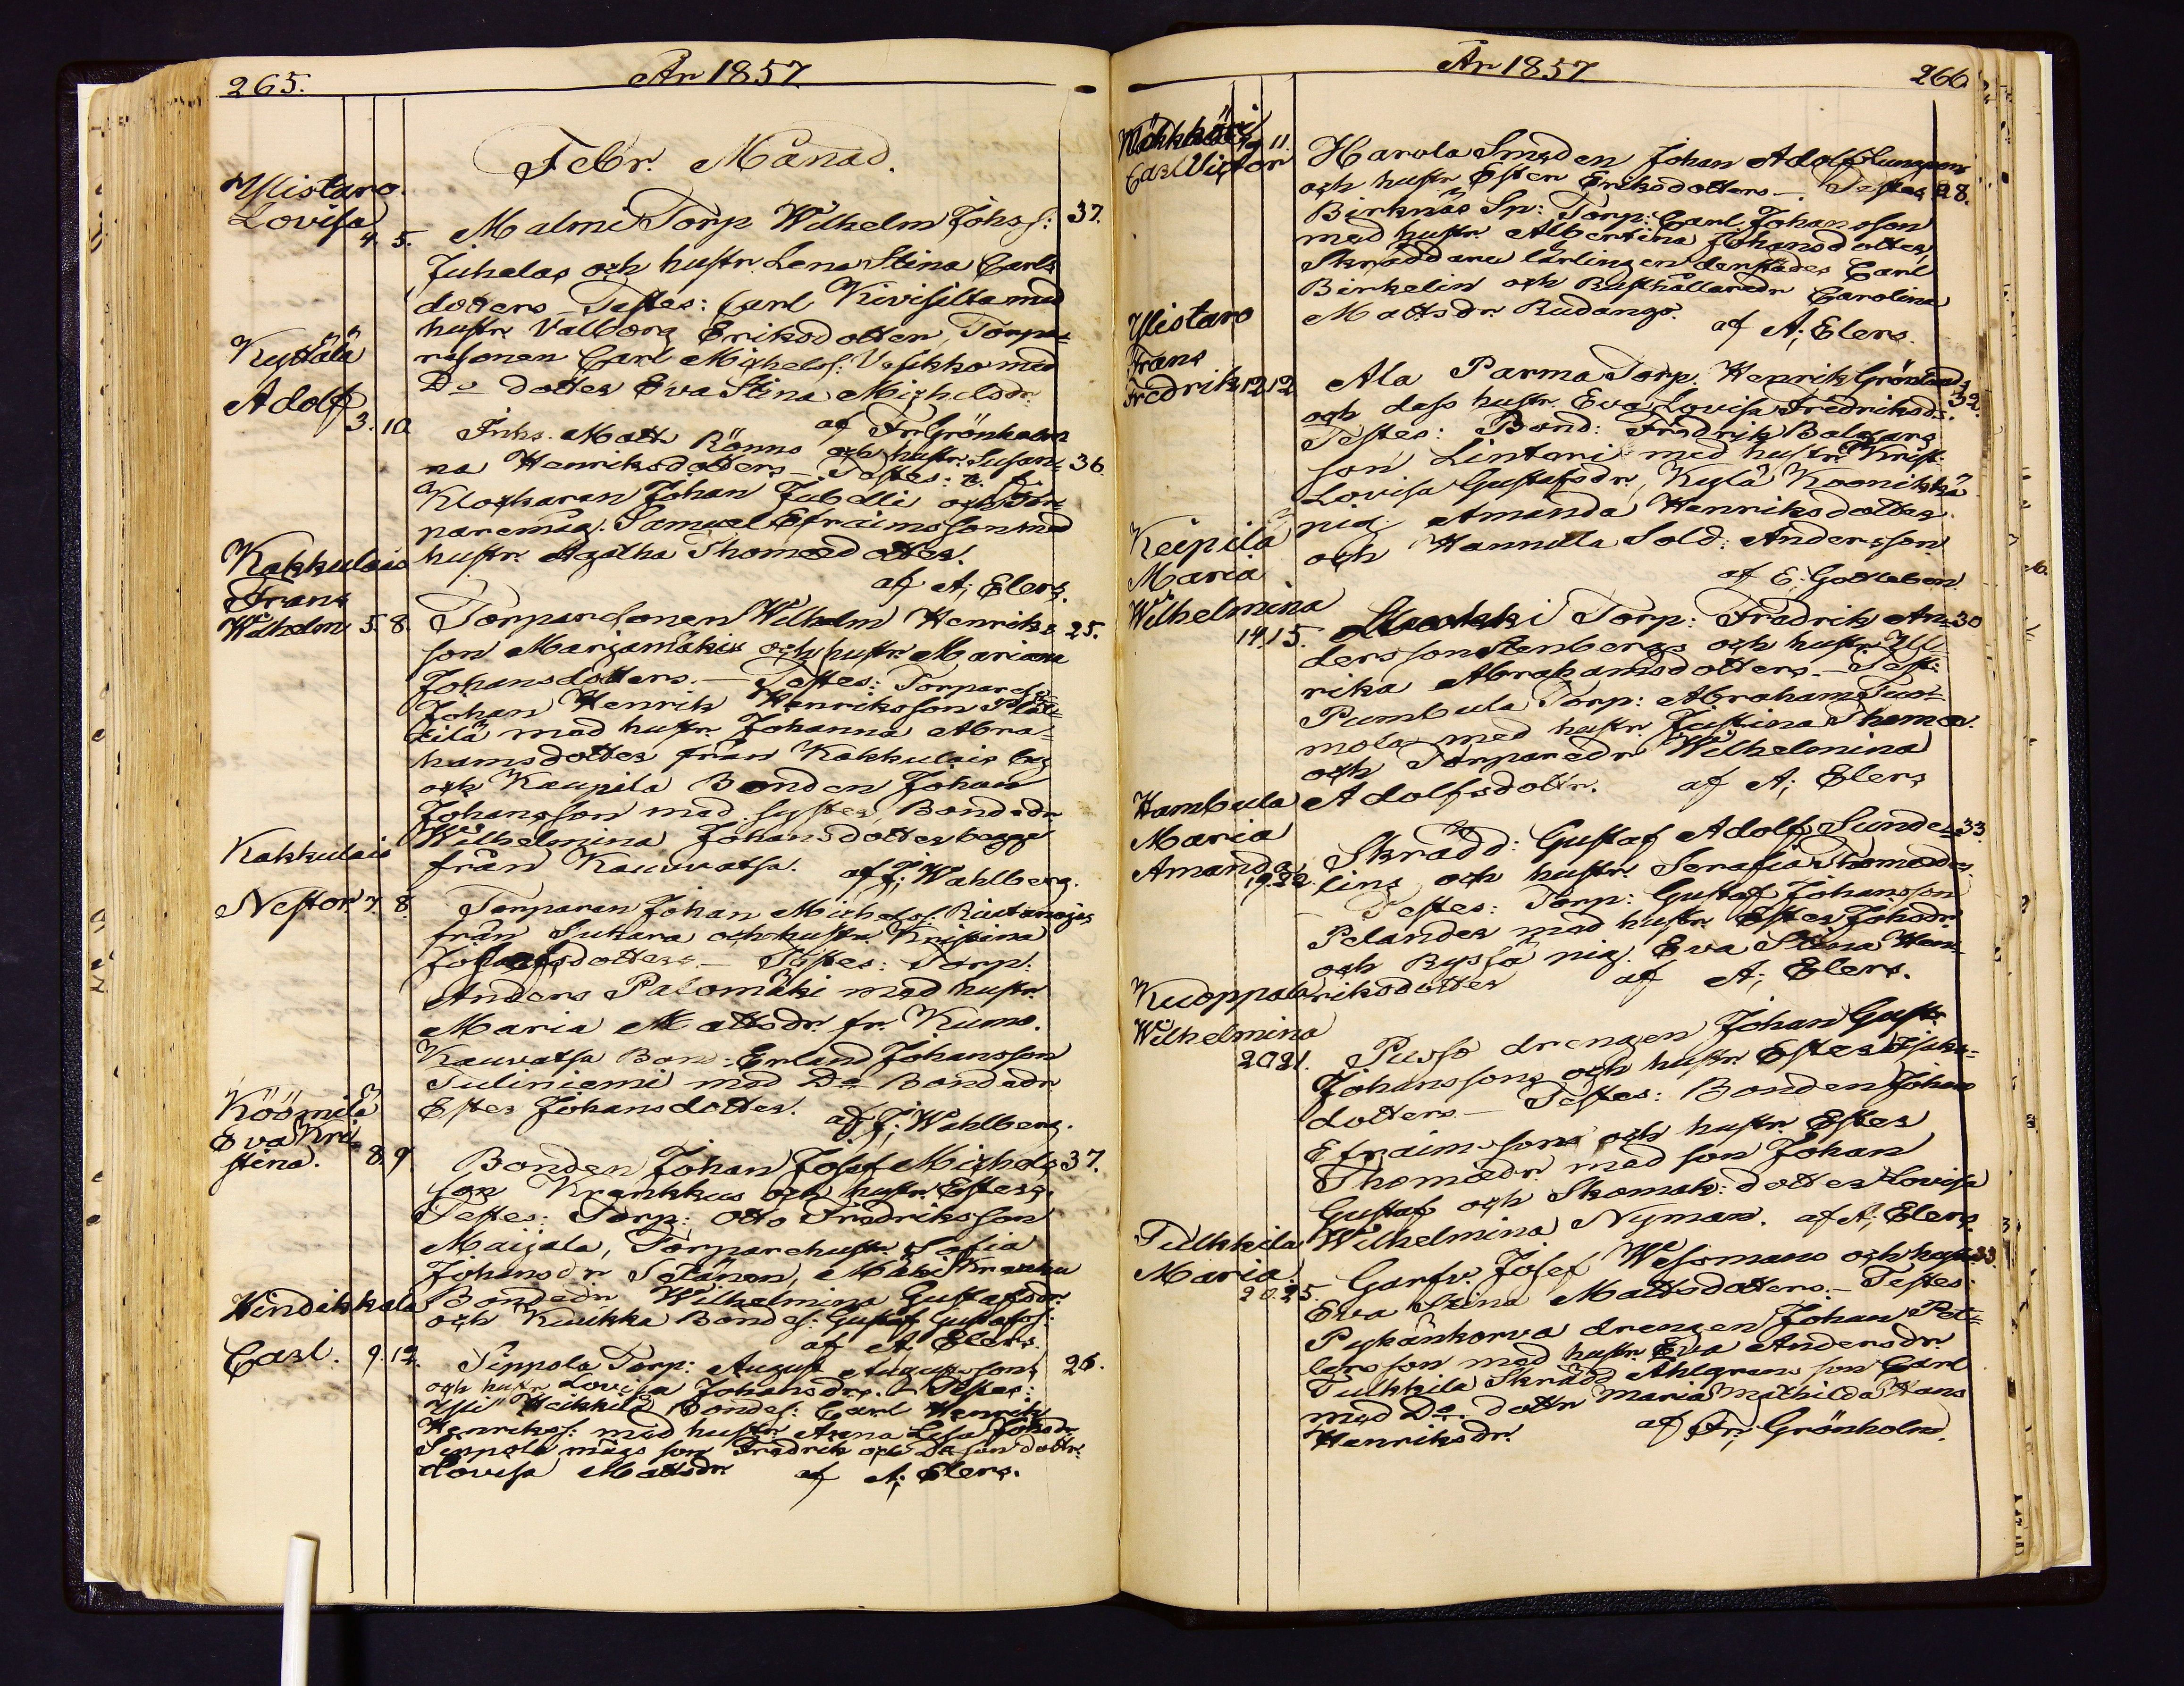 265.
År 1857
Febr. Månad.
Ylistaro
Lovisa
4. 5.
Malmi Torp Wilhelm Johss: 37.
Juhelas och hustr. Lena Stina Carls
dotters – Testes: Carl Kivisilta med
hustr. Valborg Eriksdotter, Torpa=
resonen Carl Michelss: Vesikko med
Do dotter Eva Stina Michelsdr.
af Fr. Grönholm
Kyttälä
Adolf
3. 10
Inhs. Matts Rönns och hustr. Susan= 36
na Henriksdotters – Testes:
Klockaren Johan Jubelli och Tor=
paremåg: Samuel Efraimsson med
hustr. Agatha Thomædotter.
af A; Elers.
Kakkulais
Frans
Wilhelm 5. 8.
Torparesonen Wilhelm Henriks 25.
son Marjamäkis och hustr. Mariana
Johansdotters. – Testes: Torpares:
Johan Henrik Henriksson
tilä med hustr. Johanna Abra=
hamsdotter från Kakkulais by
och Kaupila Bonden Johan
Johansson med syster, Bondedr
Wilhelmina Johansdotter begge
från Kauvatsa. af J; Wahlberg.
Kakkulais
Nestor 7 8
Torparen Johan Michelss: Riutanojas
från Sukara och hustr. Kristina
dotters – Testes: Torp:
Anders Palomäki med hustr.
Maria Mattsdr. fr. Kumo.
Kauvatsa Bond: Erland Johansson
Tuliniemi med Do Bondedr
Ester Johansdotter. af J; Wahlberg.
Köömilä
Eva Kri=
stina. 8. 9
Bonden Johan Josef Michels 37.
son Krankkus och hustr. Esters.
Testes: Torp: Otto Fredriksson
Maijala, Torparehustr. Sofia
Johansdr. Sätänen, Mäki Krankku
Bondedr. Wilhelmina Gustafsdr.
och Kuukka Bondes: Gustaf Gustafss:
af A; Elers.
Hindikkala
Carl. 9. 12.
Sippola Torp: August Augustssons 26.
och hustr. Lovisa Johansdrs. – Testes:
Yli Heikkilä Bondes: Carl Henrik
Henrikss: med hustr. Anna Lisa Johsdr.
Sippola mågs son Fredrik och Do son dottr.
Lovisa Mattsdr af A; Elers.
År 1857
266
Carl Victor
9 11.
Harola Smeden Johan Adolf
och hustr. Ester Eriksdotters. – Testes 28.
Birknäs Sp: Torp: Carl Johansson
med hustr. Albertina Johansdotter,
Skräddare lärlingen derstädes Carl
Birkelin och Rusthållaredr Carolina
Mattsdr. Rudangs. af A; Elers.
Ylistaro
Frans
Fredrik 12. 12
Ala Parma Torp. Henrik Grönlunds
och dess hustr. Eva Lovisa Fredriksds. 32.
Testes: Bond: Fredrik Baltzars
son Lintari med hustr. Krist:
Lovisa Gustafsdr, Kylä Koonikkä
pig Amanda Henriksdotter
och Hannulla Sold: Andersson
af E. Gottleben
Keipilä
Maria
Wilhelmina
14 15.
Torp: Fredrik An= 30
dersson Stenbergs och hustr. Ul=
rika Abrahamsdotters – Test:
Pumbula Torp: Abraham Tuo=
mola med hustr. Justina Thomæ.
och Torparedr Wilhelmina
Adolfsdottr. af A; Elers
Hambula
Maria
Amanda
19. 22.
Skrädd: Gustaf Adolf Sunde= 33.
ling och hustr. Serafia Thomædrs.
Testes: Torp: Gustaf Johansson
Pelander med hustr. Ester Johsdr
och Ryssä pig. Eva Stina Hen=
riksdotter af A; Elers.
Kuoppala
Wilhelmina
20 21.
Pusso drengen Johan Gustr.
Johanssons och hustr. Ester Isaks=
dotters – Testes: Bonden Johan
Efraimsson och hustr. Ester
Thomædr. med son Johan
Gustaf och Skomak: dotter Lovisa
Wilhelmina Nyman. af A; Elers.
Tulkkila
Maria.
20. 25.
Garfv. Josef Wessmans och hustr. 33
Eva Stina Mattsdotters. – Testes:
Pyhänkorva drengen Johan Pet=
tersson med hustr. Eva Andersdr.
Tulkkila Skrädd Ahlgrens son Carl
med Do. dottr Maria Mathilda Hans
Henriksdr. af Fr; Grönholm.